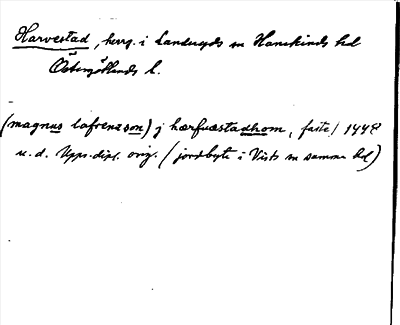 Harvestad, herrg. i Landeryds sn Hanekinds hd
Östergötlands l.
(magnus lafrenzson) j hærfuæstadhom, faste, 1448
u. d. Upps. dipl. orig. (jordbyte i Vists sn samma hd)